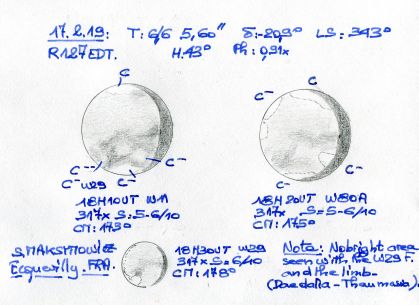 17.2.19: T: 6/6 5,60" δ: -20,9° LS: 343°
R127EDT. H: 43° Ph: 0,91x
C C
C- C-
C-- C-
C- W29 C- C-
18H10UT W11 18H20UT W80A
317x S=5-6/10 317x S=5-6/10
CM: 173° CM: 175°
S. MAKSYMOWICZ
Ecquevilly. FRA.
18H30UT W29
317x S=6/10
CM: 178°
Nota: No bright area
seen with the W29 F.
and the limb.
(Daedalia-Thaumasia)